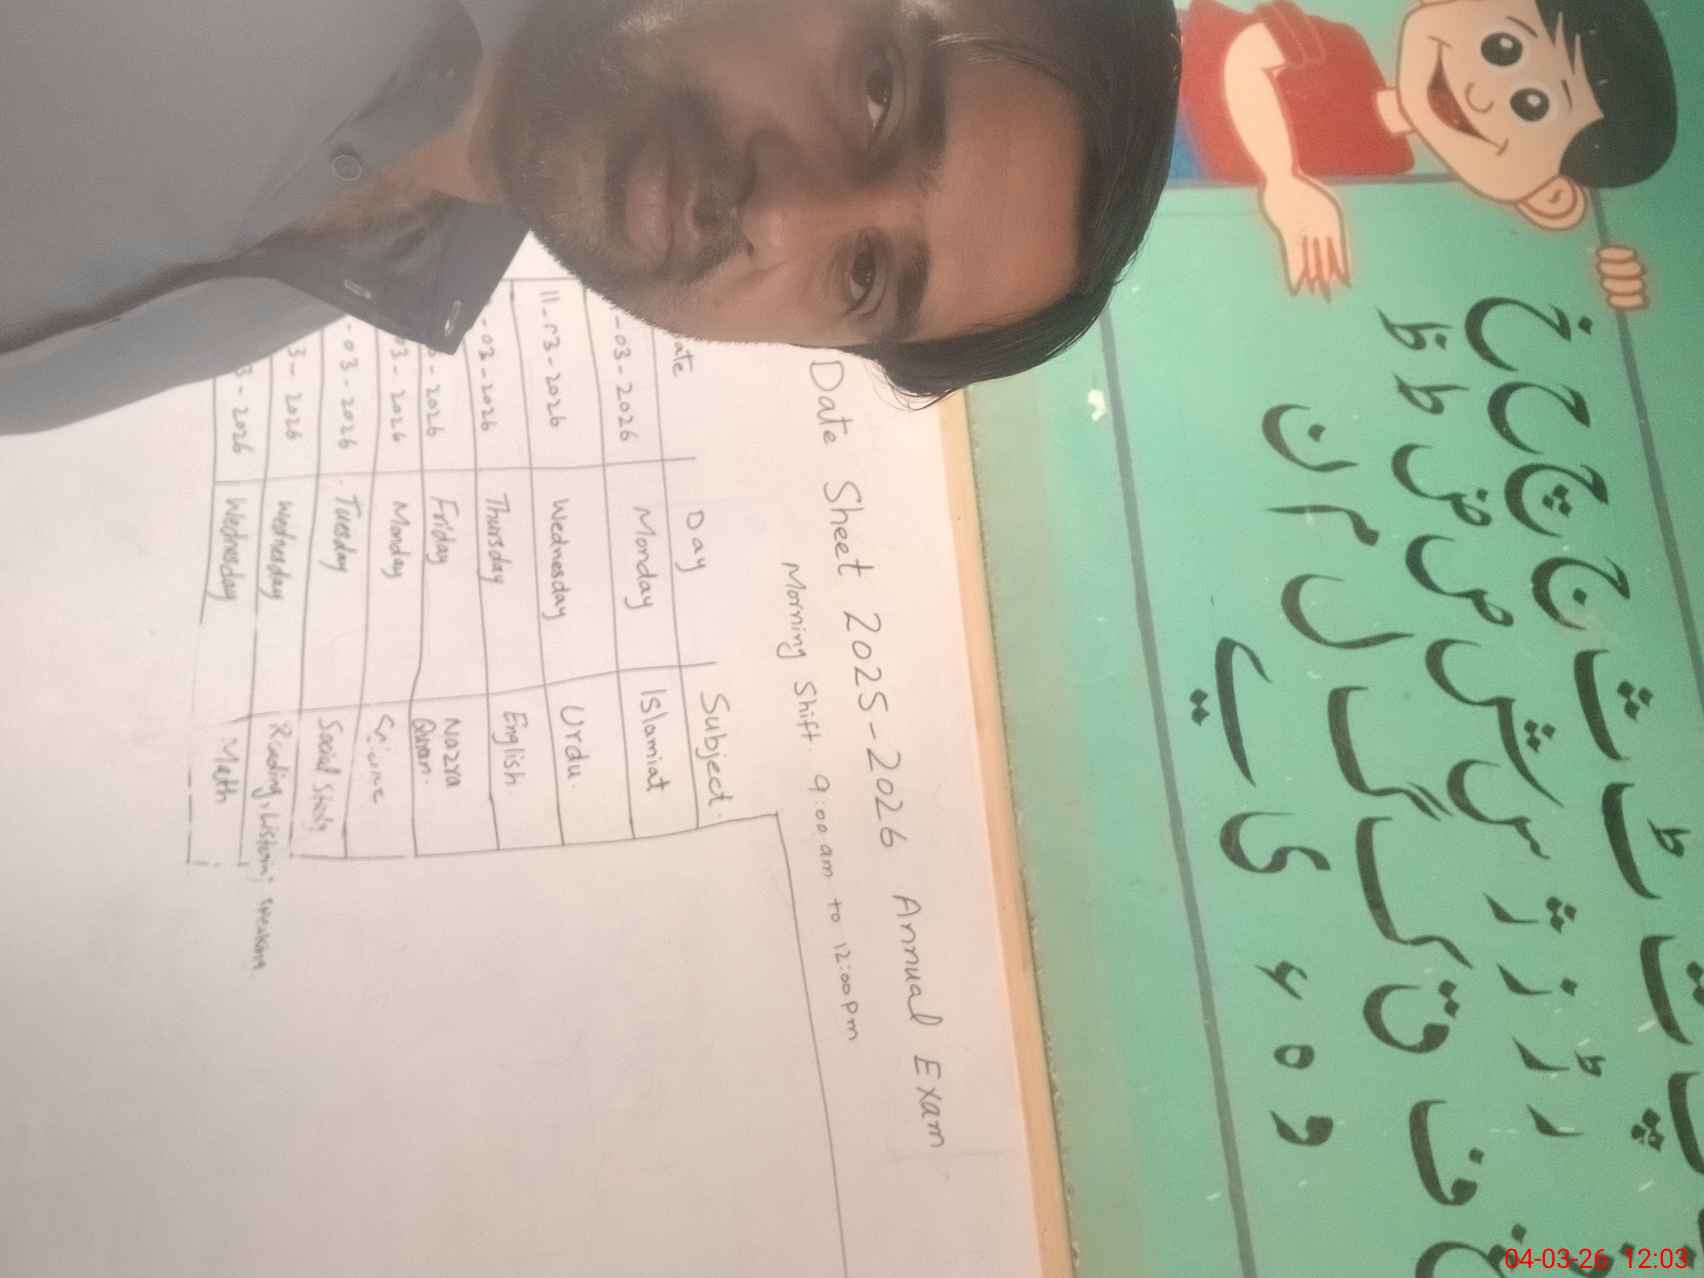 خ ح چ ج ث ٹ ت پ
ظ ط ض ص ش س ژ ز ڑ ر
ن م ل گ ک ق ف
ے ی ء ہ و
Date Sheet 2025-2026 Annual Exam
Morning Shift. 9:00 am to 12:00 Pm
Day Subject.
-03-2026 Monday Islamiat
11-03-2026 Wednesday Urdu.
2026 Thursday English.
2026 Friday Nazra Quran.
03-2026 Monday Science
-03-2026 Tuesday Social Study
2026 Wednesday Reading, Listening, Speaking
2026 Wednesday Math
04-03-26 12:03